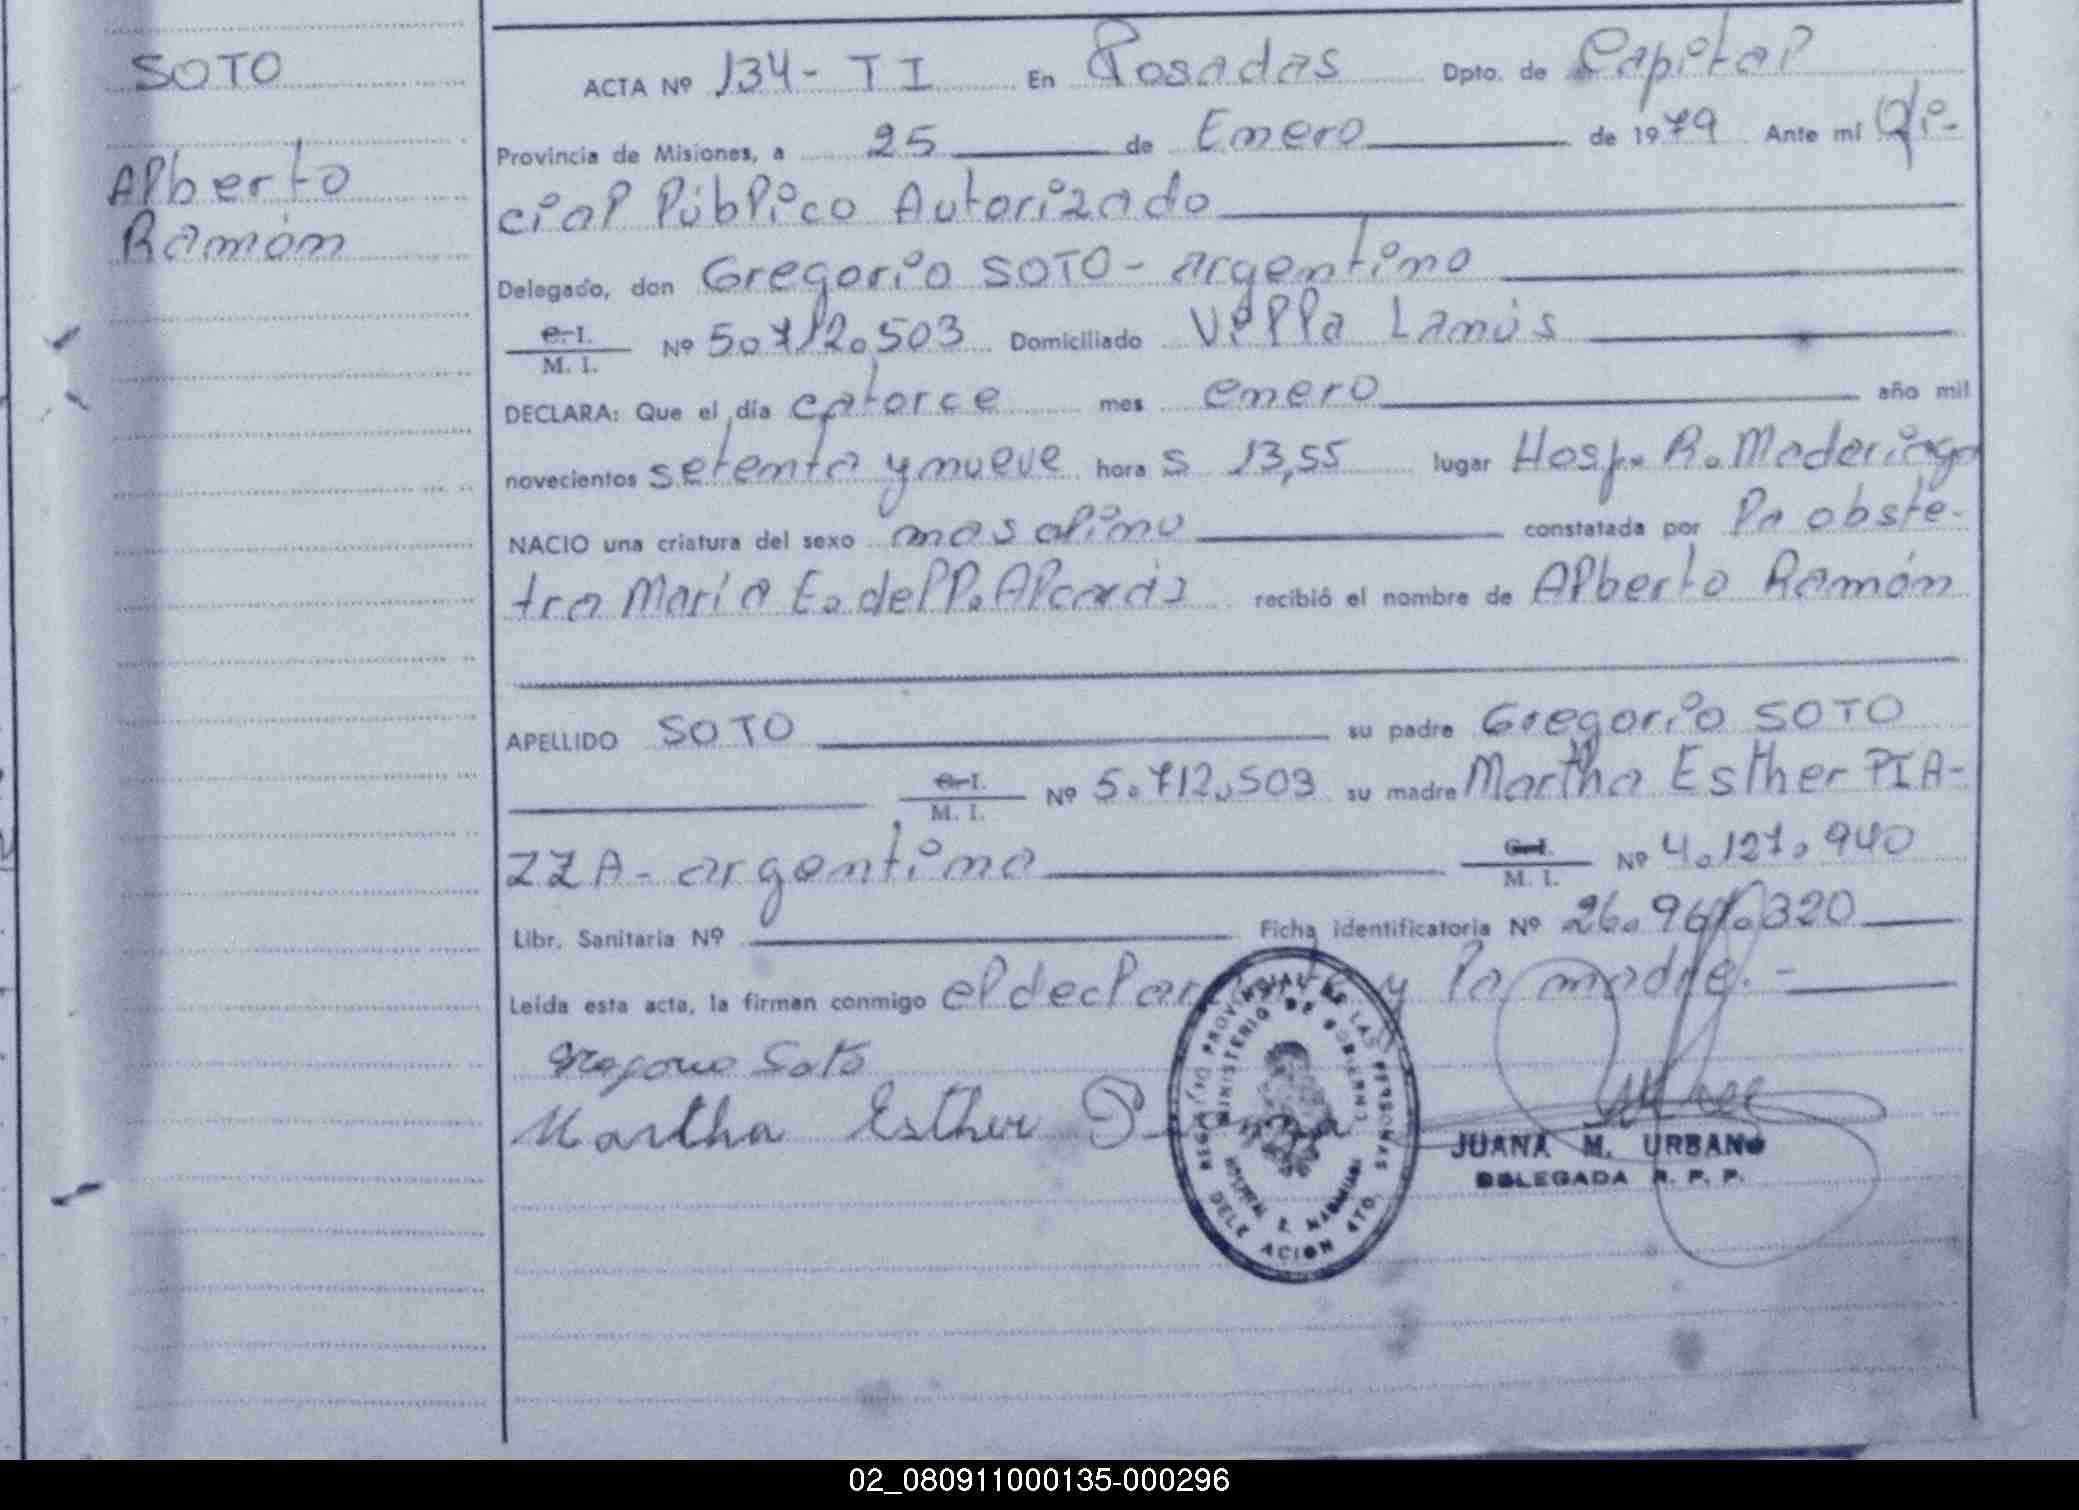 SOTO
Alberto
Ramón
ACTA Nº 134- TI En Posadas Dpto. de Capital
Provincia de Misiones, a 25 de Enero de 1979 Ante mi Ofi-
cial Público Autorizado
Delegado, don Gregorio SOTO - argentino
C. I. M. I. Nº 5.712.503 Domiciliado Villa Lanús
DECLARA: Que el día catorce mes enero año mil
novecientos setenta y nueve hora s 13,55 lugar Hosp. R. Madariaga
NACIO una criatura del sexo masculino constatada por la obste-
tra María E. del P. Alcaráz recibió el nombre de Alberto Ramón
APELLIDO SOTO su padre Gregorio SOTO
C. I. M. I. Nº 5.712.503 su madre Martha Esther PIA-
ZZA - argentina C. I. M. I. Nº 4.127.940
Libr. Sanitaria Nº Ficha identificatoria Nº 26.961.320
Leída esta acta, la firman conmigo el declarante y la madre.-
Gregorio Soto
Martha Esther
REGISTRO PROVINCIAL DE LAS PERSONAS
MINISTERIO DE GOBIERNO
DELEGACION 4TO.
JUANA M. URBANO
DELEGADA R. P. P.
02_080911000135-000296